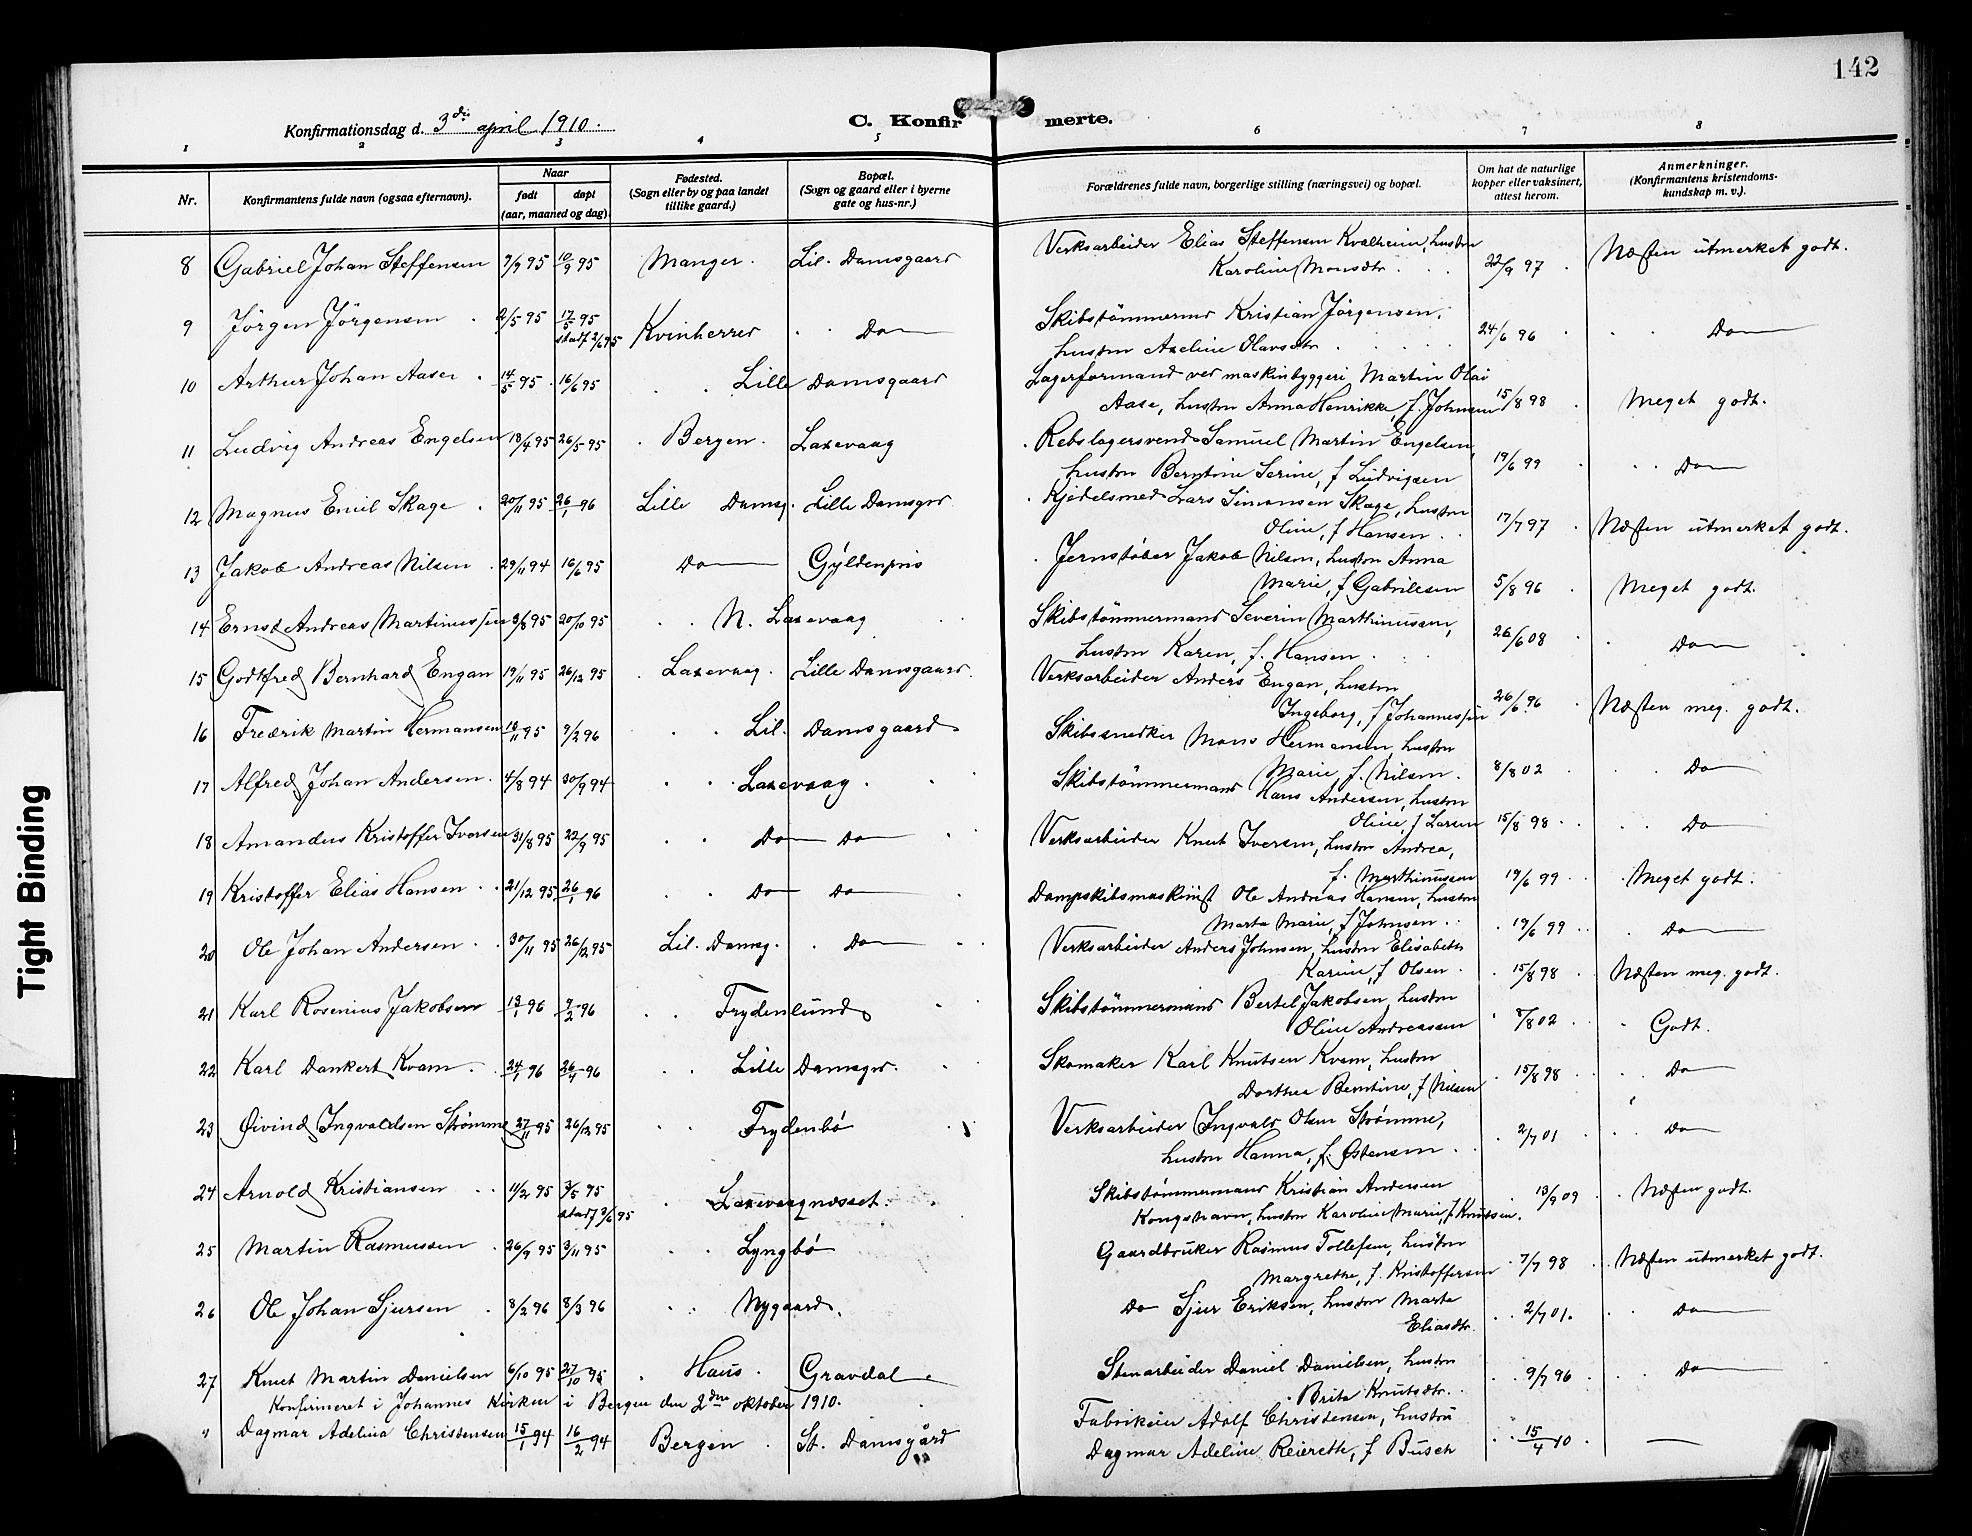 142
Konfirmationsdag d. 3die april 1910.
C. Konfirmerte.
1 2 3 4 5 6 7 8
Nr. Konfirmantens fulde navn (ogsaa efternavn). Naar født døpt (aar, maaned og dag). Fødested. (Sogn eller by og paa landet tillike gaard.) Bopæl. (Sogn og gaard eller i byerne gate og hus-nr.) Forældrenes fulde navn, borgerlige stilling (næringsvei) og bopæl. Om hat de naturlige kopper eller vaksinert, attest herom. Anmerkninger. (Konfirmantens kristendomskundskap m. v.).
8 Gabriel Johan Steffensen 7/9 95 10/9 95 Manger. Lil. Damsgaard Verksarbeider Elias Steffensen Kvalheim, hustru
Karoline Monsdtr. 22/9 97 Næsten utmerket godt.
9 Jörgen Jörgensen 2/5 95 17/5 95 Kvinherred Do Skibstömmermd Kristian Jörgensen,
stadf 2/6 95 hustru Axeline Olavsdtr 24/6 96 Do
10 Arthur Johan Aase 14/5 95 16/6 95 Lille Damsgaard Lagerformand ved maskinbyggeri Martin Olai
Aase, hustru Anna Henrikke, f. Johnsen 15/8 98 Meget godt.
11 Ludvig Andreas Engelsen 18/4 95 26/5 95 Bergen. Laxevaag Rebslagersvend Samuel Martin Engelsen,
hustru Berntine Serine, f Ludvigsen 19/6 99 Do
12 Magnus Emil Skage 20/11 95 26/1 96 Lille Damsg. Lille Damsgrd Kjedelsmed Lars Simonsen Skage, hustru
Oline, f Hansen 17/7 97 Næsten utmerket godt.
13 Jakob Andreas Nilsen 29/11 94 16/6 95 Do Gyldenpris Jernstöber Jakob Nilsen, hustru Anna
Marie, f Gabrielsen 5/8 96 Meget godt.
14 Ernst Andreas Martinussen 3/8 95 20/10 95 N. Laxevaag Skibstömmermand Severin Marthinussen,
hustru Karen, f. Hansen 26/6 08 Do
15 Godtfred Bernhard Engan 19/11 95 26/12 95 Laxevaag. Lille Damsgaard Verksarbeider Anders Engan, hustru
Ingeborg, f Johannessen 26/6 96 Næsten meg. godt.
16 Fredrik Martin Hermansen 10/11 95 9/2 96 Lil. Damsgaard Skibssnedker Mons Hermansen, hustru
Marie, f. Nilsen. 8/8 02 Do
17 Alfred Johan Andersen. 4/8 94 30/9 94 Laxevaag. Skibstömmermand Hans Andersen, hustru
Oline, f Larsen 15/8 98 Do
18 Amandus Kristoffer Iversen 31/8 95 22/9 95 Do Do Verksarbeider Knut Iversen, hustru Andrea,
f. Marthinussen 19/6 99 Meget godt.
19 Kristoffer Elias Hansen 21/12 95 26/1 96 Do Do Dampskibsmaskinist Ole Andreas Hansen, hustru
Marta Marie, f Johnsen 19/6 99 Do
20 Ole Johan Andersen 30/11 95 26/12 95 Lil. Damsg. Do Verksarbeider Anders Johnsen, hustru Elisabeth
Karine, f Olsen 15/8 98 Næsten meg. godt.
21 Karl Rosenius Jakobsen 18/1 96 9/2 96 Frydenlund Skibstömmermand Bertel Jakobsen, hustru
Oline Andreassen 7/8 02 Godt.
22 Karl Dankert Kvam 24/1 96 26/4 96 Lille Damsgrd. Skomaker Karl Knutsen Kvam, hustru
Dorthea Berntine, f Nilsen 15/8 98 Do
23 Øivind Ingvaldsen Strömme 27/11 95 26/12 95 Frydenbö Verksarbeider Ingvald Olsen Strømme,
hustru Hanna, f. Østensen 2/7 01 Do
24 Arnold Kristiansen 11/2 95 3/5 95 Laxevaagnæsset. Skibstömmermand Kristian Andersen
stadf 3/6 95 Kongshavn, hustru Karoline Marie, f Knutsen. 13/9 09 Næsten godt.
25 Martin Rasmussen 26/9 95 3/11 95 Lyngbö Gaardbruker Rasmus Tollefsen, hustru
Margrethe, f. Kristoffersen 7/7 98 Næsten utmerket godt.
26 Ole Johan Sjursen 8/2 96 8/3 96 Nygaard. Do Sjur Eriksen, hustru Marta
Eliasdtr. 2/7 01. Do
27 Knut Martin Danielsen 6/10 95 27/10 95 Haus. Gravdal Stenarbeider Daniel Danielsen, hustru
Brita Knutsdtr. 9/7 96 Do
Konfirmeret i Johannes Kirken i Bergen den 2den oktober 1910.
" Dagmar Adelina Christensen 15/1 94 16/2 94 Bergen St. Damsgård Fabrikeier Adolf Christensen, hustru
Dagmar Adeline Reierette, f Busch 15/4 10 —
Tight Binding